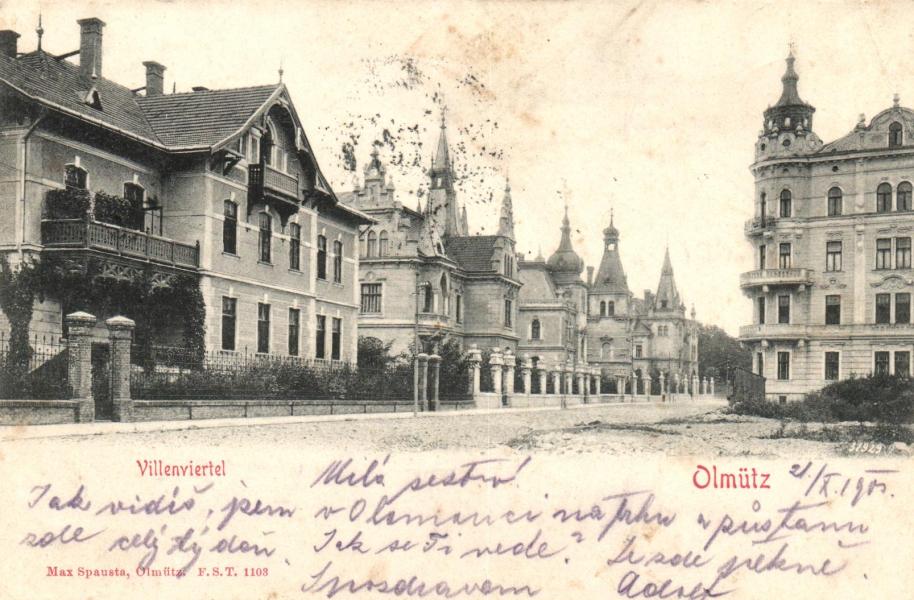 Villenviertel
Olmütz
21/X 1905.
Milá sestro!
Jak vidíš, jsem v Olomouci na trhu a zůstanu
zde celý týdeň. Jak se Ti vede? Je zde pěkně.
S pozdravem Adolf
Max Spausta, Olmütz. F. S. T. 1103